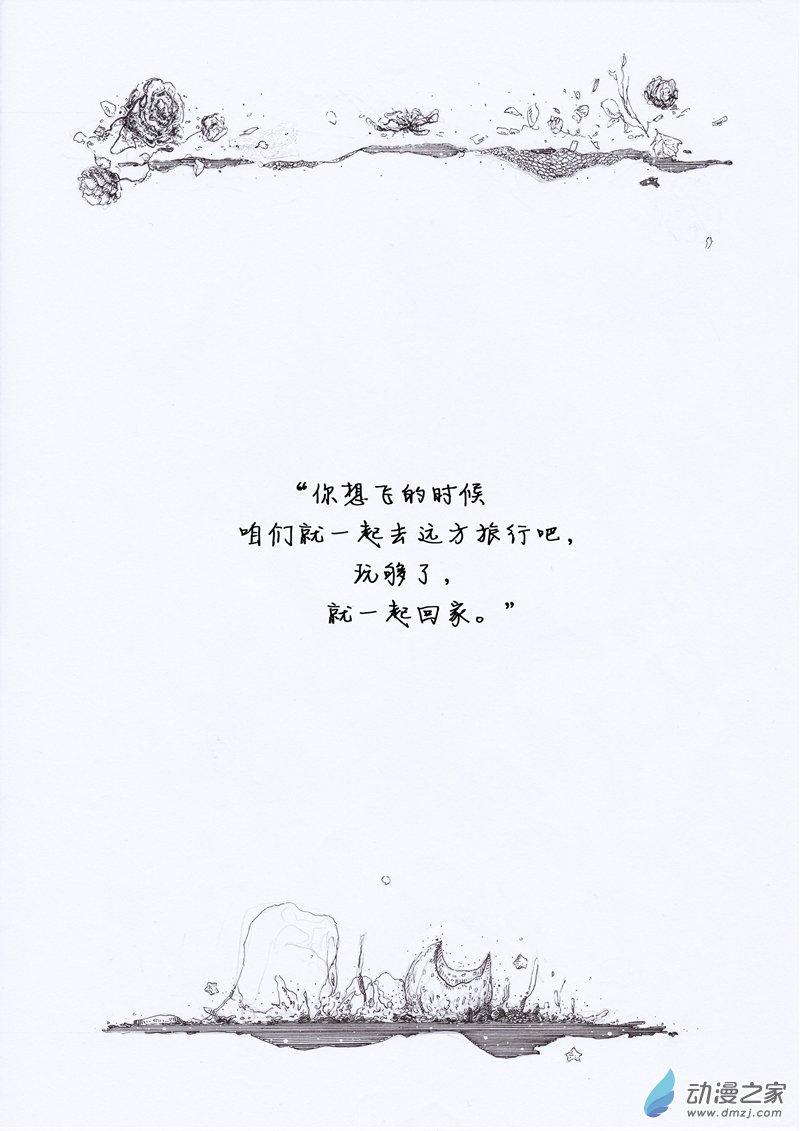 “你想飞的时候
咱们就一起去远方旅行吧，
玩够了，
就一起回家。”
动漫之家
www.dmzj.com